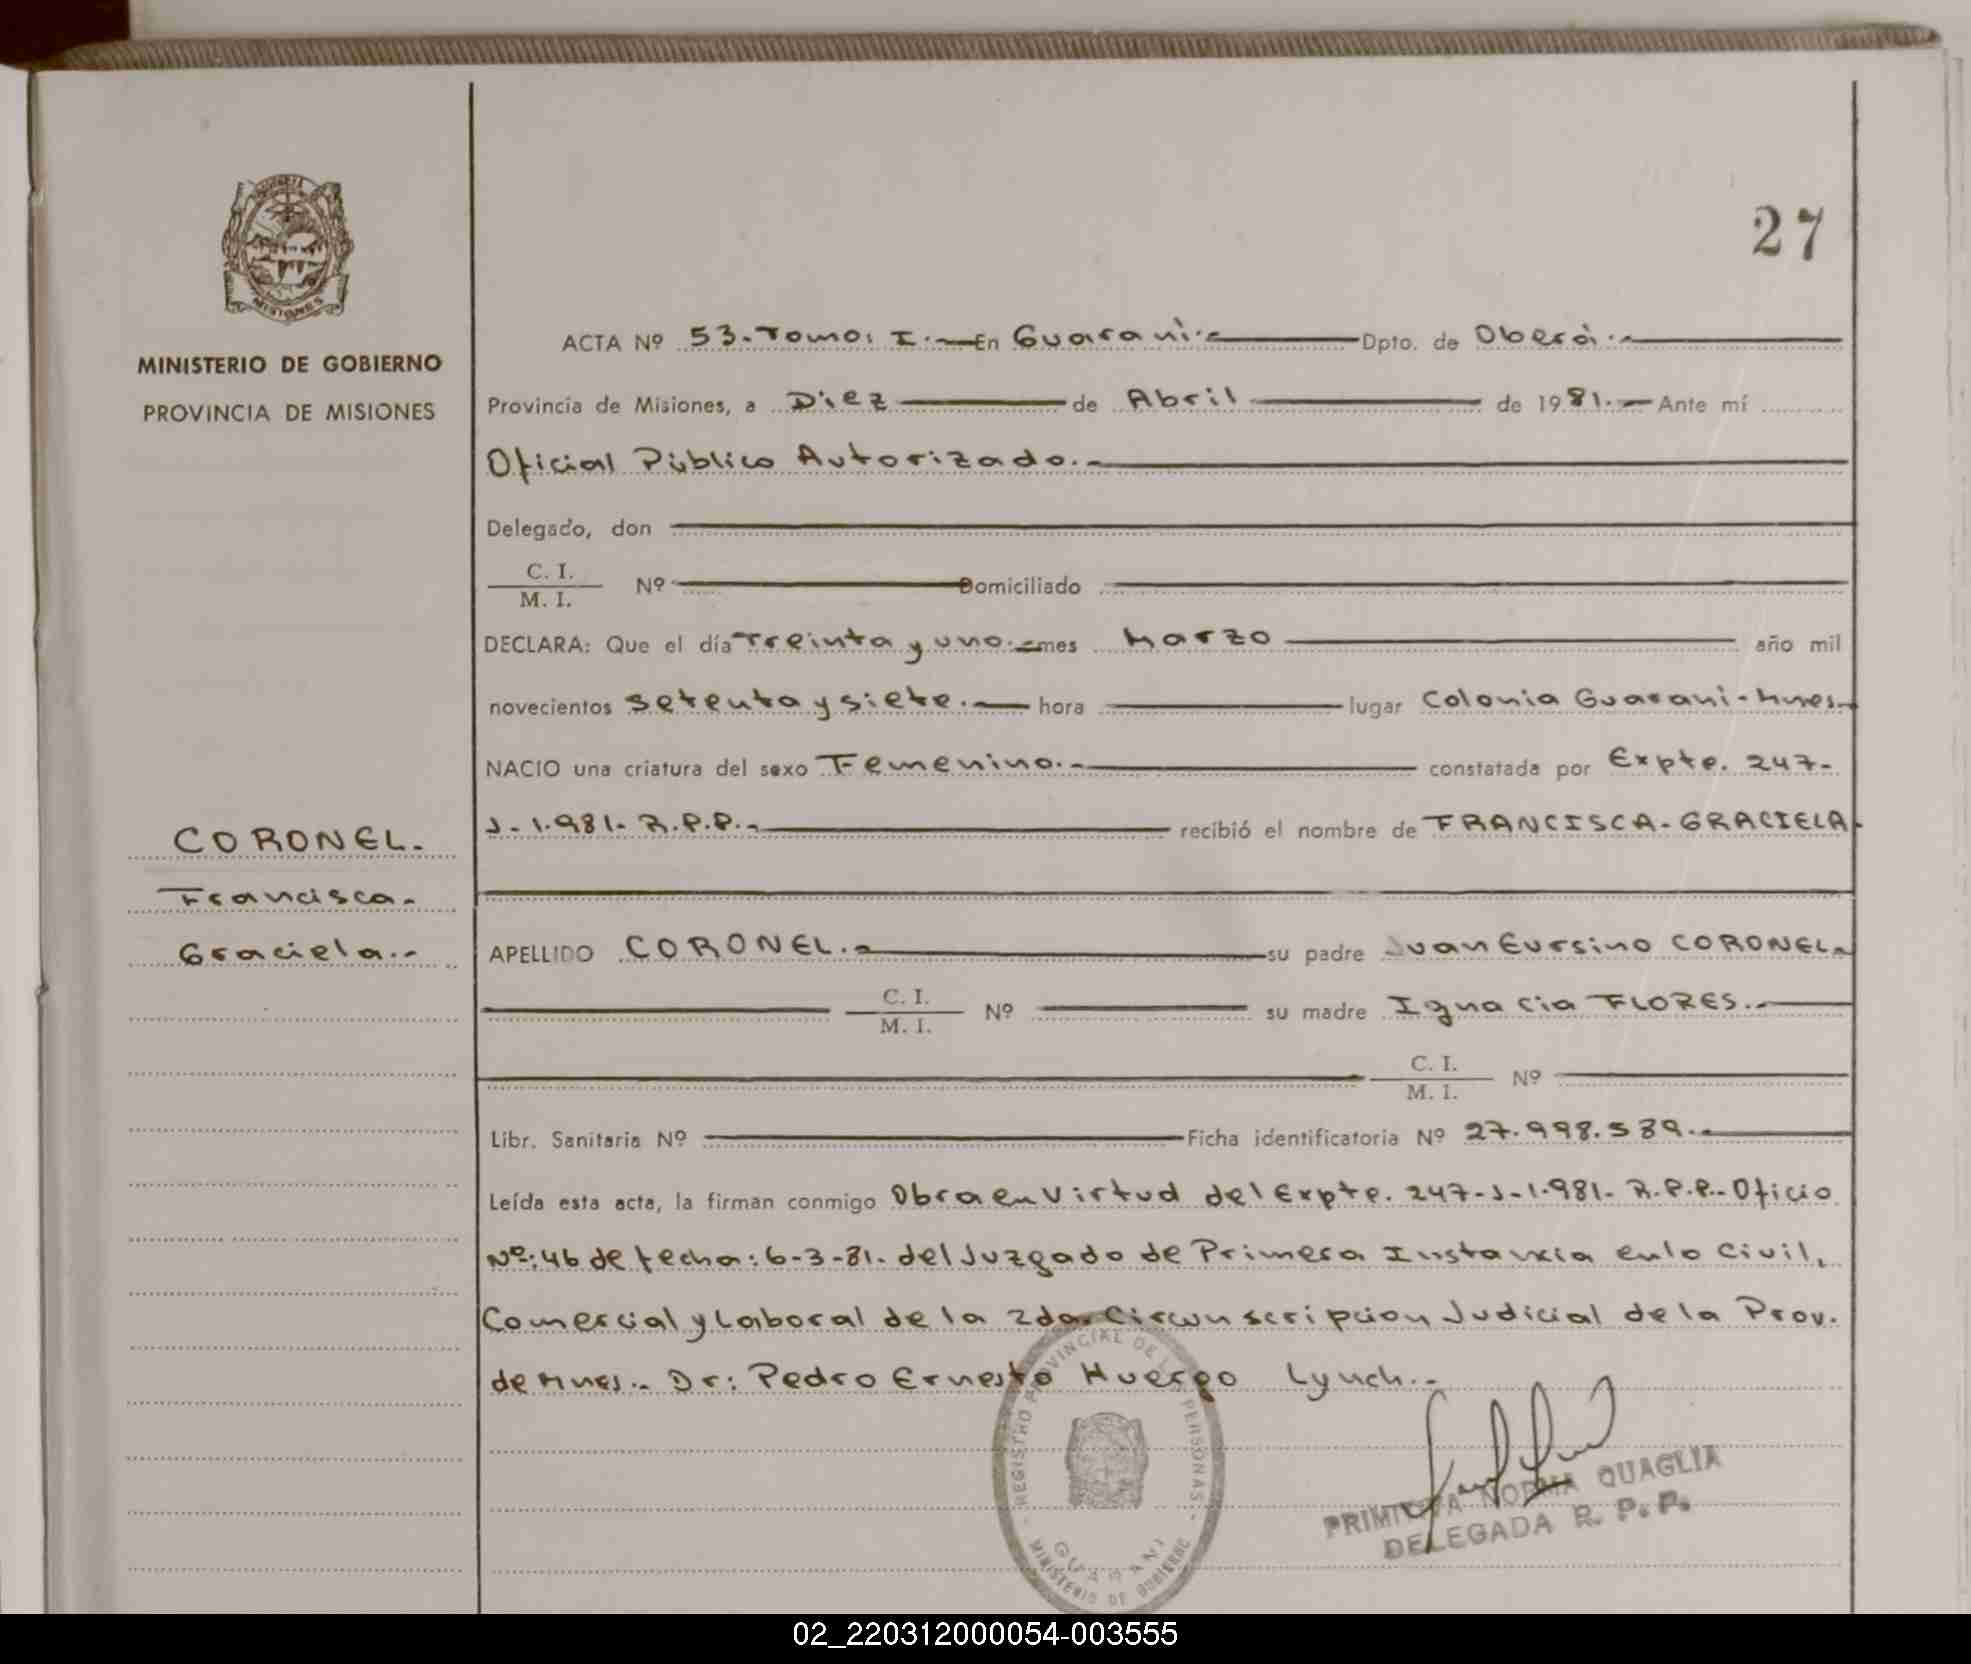 27
MISIONES
MINISTERIO DE GOBIERNO
PROVINCIA DE MISIONES
CORONEL.
Francisca-
Graciela.-
ACTA Nº 53-Tomo: I.- En Guaraní.- Dpto. de Oberá.-
Provincia de Misiones, a Diez de Abril de 1981.- Ante mí
Oficial Público Autorizado.-
Delegado, don
C. I.
M. I. Nº Domiciliado
DECLARA: Que el día Treinta y uno.- mes Marzo año mil
novecientos setenta y siete.- hora lugar Colonia Guarani-Mnes-
NACIO una criatura del sexo Femenino.- constatada por Expte. 247-
J-1.981- R.P.P.- recibió el nombre de FRANCISCA-GRACIELA-
APELLIDO CORONEL.- su padre Juan Eursino CORONEL-
C. I.
M. I. Nº su madre Ignacia FLORES.-
C. I.
M. I. Nº
Libr. Sanitaria Nº Ficha identificatoria Nº 27.998.589.-
Leída esta acta, la firman conmigo Obra en virtud del Expte. 247-J-1.981- R.P.P.- Oficio
Nº:46 de fecha: 6-3-81- del Juzgado de Primera Instancia en lo Civil,
Comercial y Laboral de la 2da. Circunscripcion Judicial de la Prov.
de Mnes.- Dr: Pedro Ernesto Huergo Lynch.-
REGISTRO PROVINCIAL DE LAS PERSONAS
GUARANI
MINISTERIO DE GOBIERNO
PRIMITIVA NORMA QUAGLIA
DELEGADA R. P. P.
02_220312000054-003555